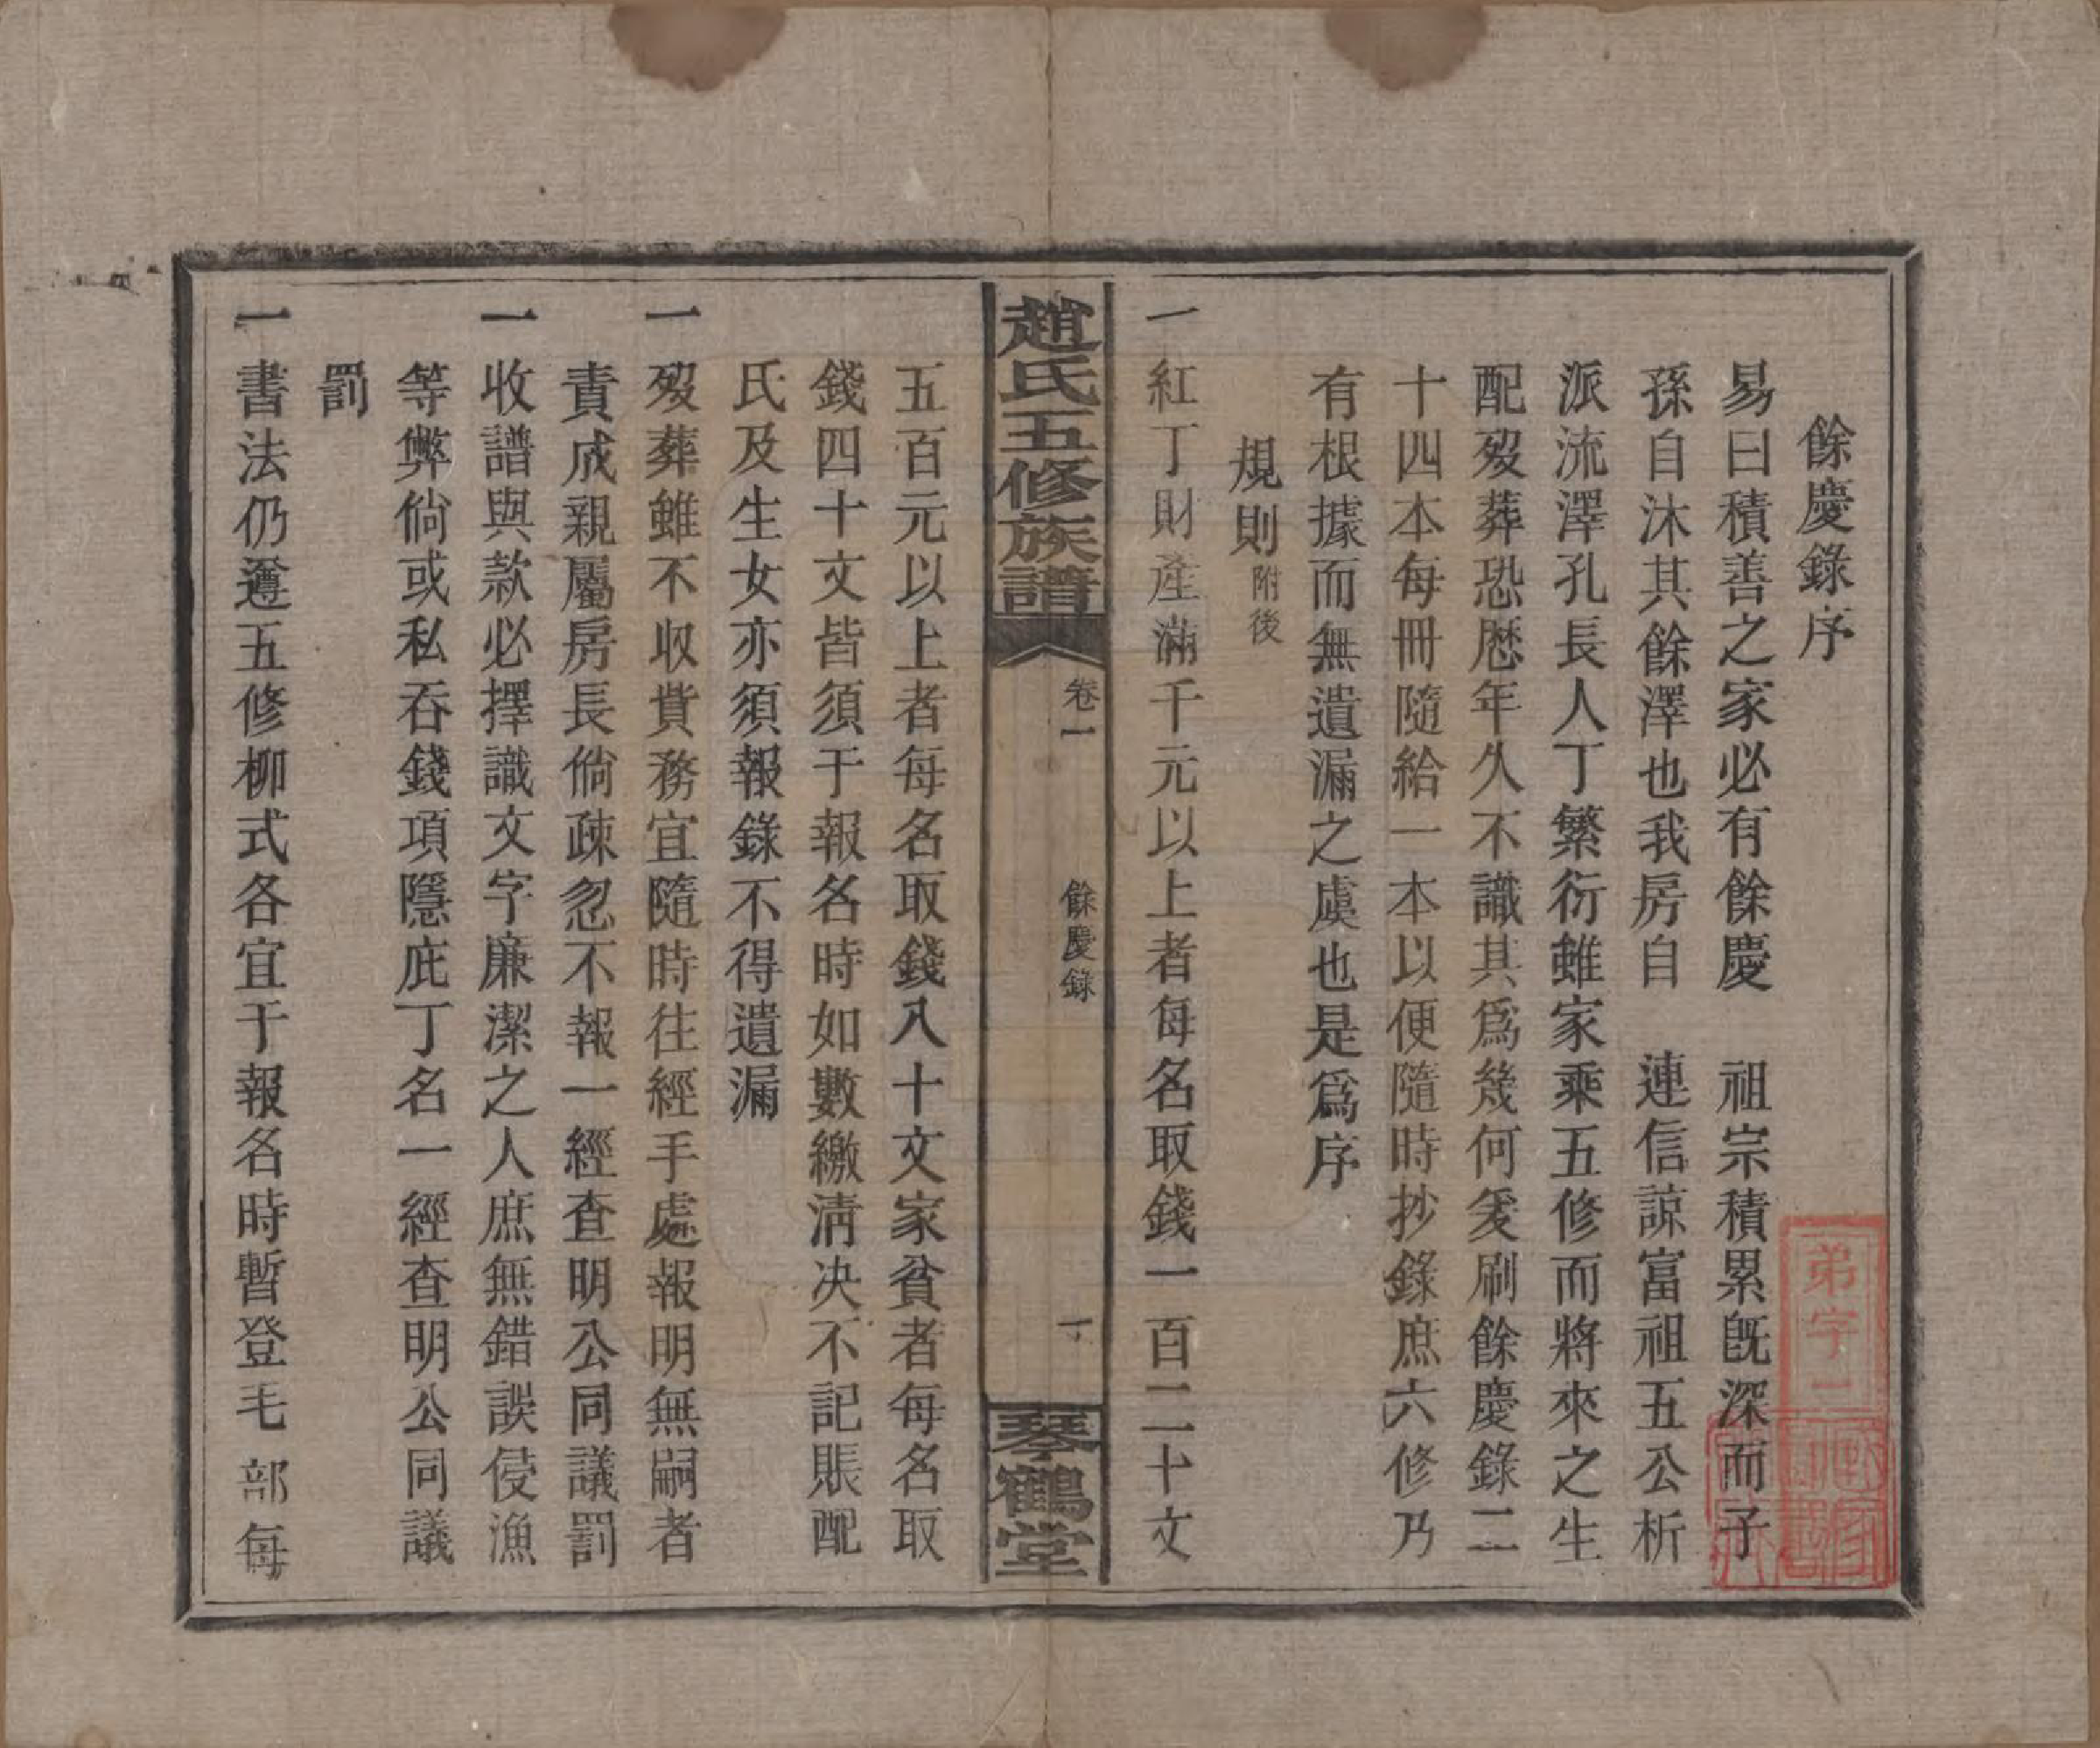 餘慶錄序
易曰積善之家必有餘慶　祖宗積累旣深而子
孫自沐其餘澤也我房自　連信諒富祖五公析
派流澤孔長人丁繁衍雖家乘五修而將來之生
配歿葬恐歷年久不識其爲幾何爰刷餘慶錄二
十四本每冊隨給一本以便隨時抄錄庶六修乃
有根據而無遺漏之虞也是爲序
規則附後
一紅丁財產滿千元以上者每名取錢一百二十文
趙氏五修族譜
卷一
餘慶錄
琴鶴堂
五百元以上者每名取錢八十文家貧者每名取
錢四十文皆須于報名時如數繳淸决不記賬配
氏及生女亦須報錄不得遺漏
一歿葬雖不收費務宜隨時往經手處報明無嗣者
責成親屬房長倘疎忽不報一經查明公同議罰
一收譜與款必擇識文字廉潔之人庶無錯誤侵漁
等弊倘或私吞錢項隱庇丁名一經查明公同議
罰
一書法仍遵五修柳式各宜于報名時暫登毛部每
弟字二